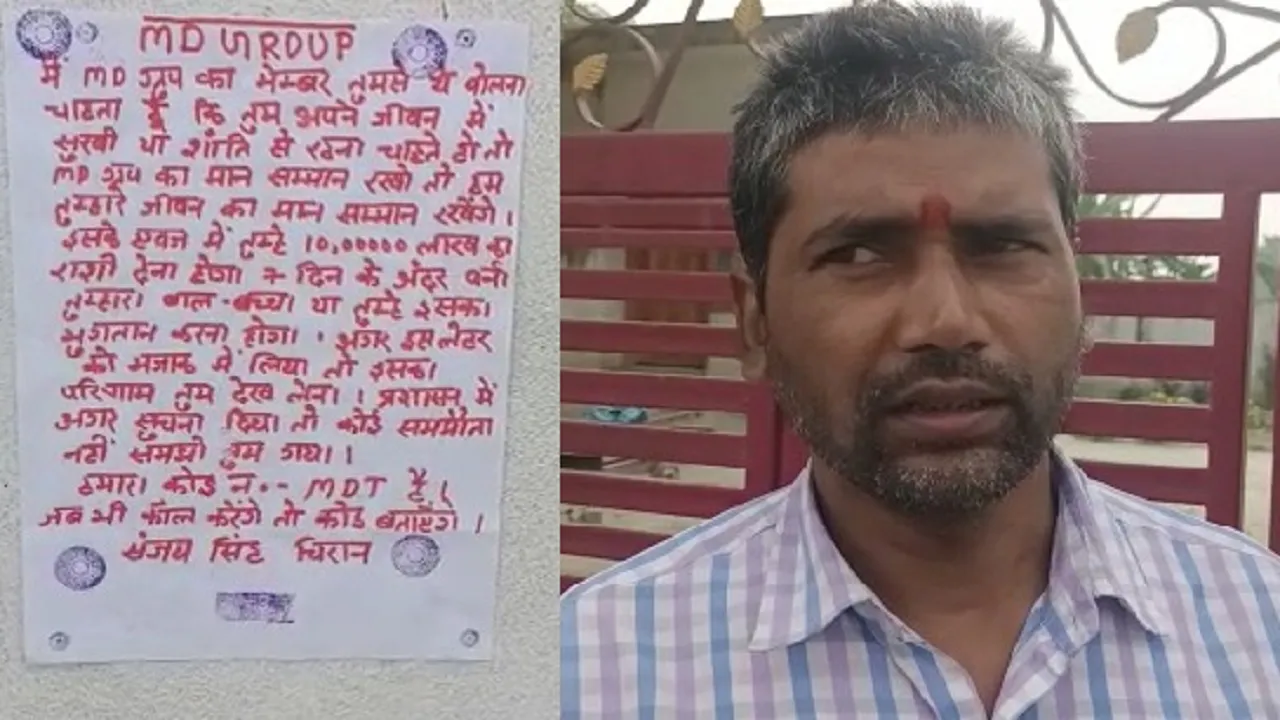 MD GROUP
मैं MD ग्रुप का मेम्बर तुमसे ये बोलना
चाहता हूँ कि तुम अपने जीवन में
सुखी या शांति से रहना चाहते हो तो
MD ग्रुप का मान सम्मान रखो तो हम
तुम्हारे जीवन का मान सम्मान रखेंगे।
इसके एवज में तुम्हे 10,00000 लाख का
राशी देना होगा 7 दिन के अंदर वर्ना
तुम्हारा बाल-बच्चा या तुम्हे इसका
भुगतान करना होगा। अगर इस लेटर
को मजाक में लिया तो इसका
परिणाम तुम देख लेना। प्रशासन में
अगर सुचना दिया तो कोई समझौता
नहीं समझो तुम गया।
हमारा कोड न.- MDT है।
जब भी कॉल करेंगे तो कोड बताएंगे।
संजय सिंह चिरान